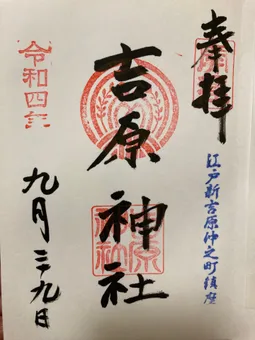 奉拝
江戸新吉原仲之町鎮座
吉原神社
令和四年
九月二九日